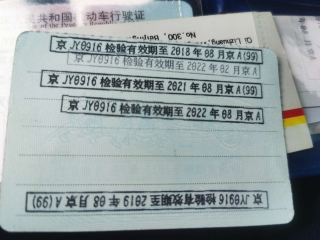 共和国机动车行驶证
No.300,
京 JY0916 检验有效期至 2018 年 08 月京 A(99)
京 JY0916 检验有效期至 2022 年 02 月京 A
京 JY0916 检验有效期至 2021 年 08 月京 A(99)
京 JY0916 检验有效期至 2022 年 08 月京 A
京 JY0916 检验有效期至 2019 年 08 月京 A(99)